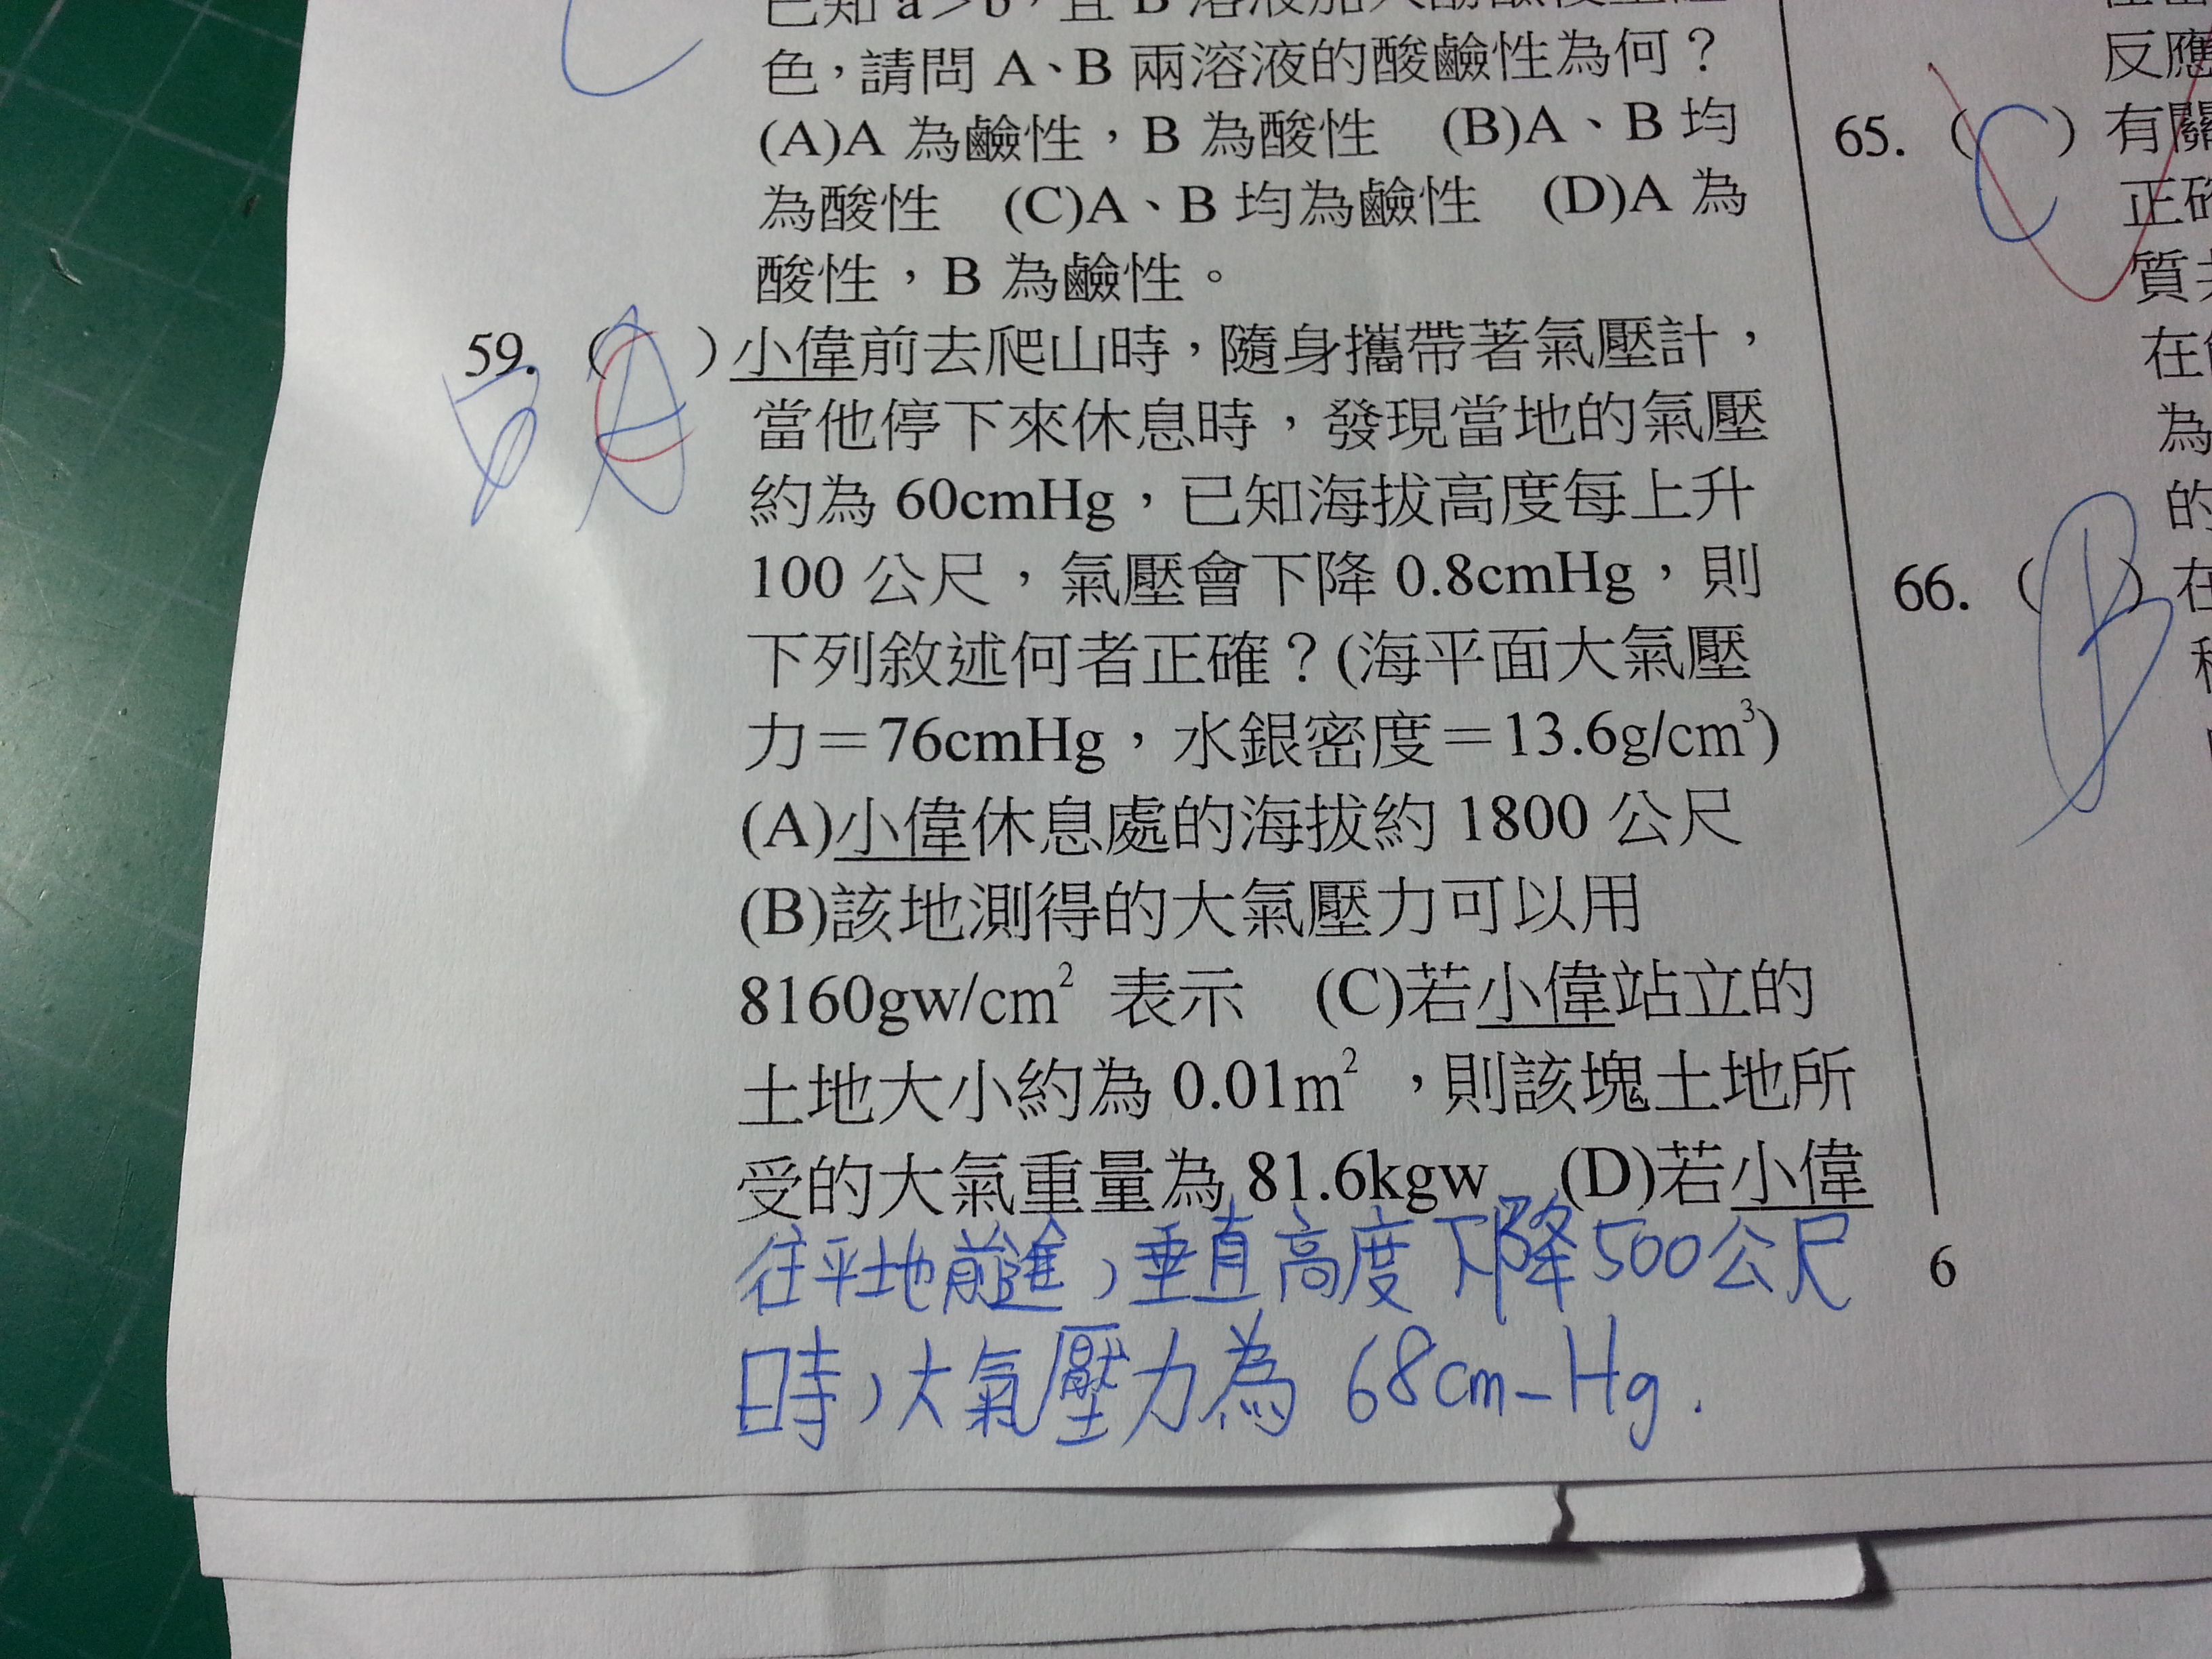 色，請問 A、B 兩溶液的酸鹼性為何？
(A)A 為鹼性，B 為酸性　(B)A、B 均
為酸性　(C)A、B 均為鹼性　(D)A 為
酸性，B 為鹼性。
59. (　) 小偉前去爬山時，隨身攜帶著氣壓計，
當他停下來休息時，發現當地的氣壓
約為 60cmHg，已知海拔高度每上升
100 公尺，氣壓會下降 0.8cmHg，則
下列敘述何者正確？(海平面大氣壓
力＝76cmHg，水銀密度＝13.6g/cm³)
(A)小偉休息處的海拔約 1800 公尺
(B)該地測得的大氣壓力可以用
8160gw/cm² 表示　(C)若小偉站立的
土地大小約為 0.01m²，則該塊土地所
受的大氣重量為 81.6kgw　(D)若小偉
往平地前進，垂直高度下降500公尺
時，大氣壓力為 68cm-Hg.
6
反應
65. (C) 有關
正確
質
在
為
的
66. (B) 在